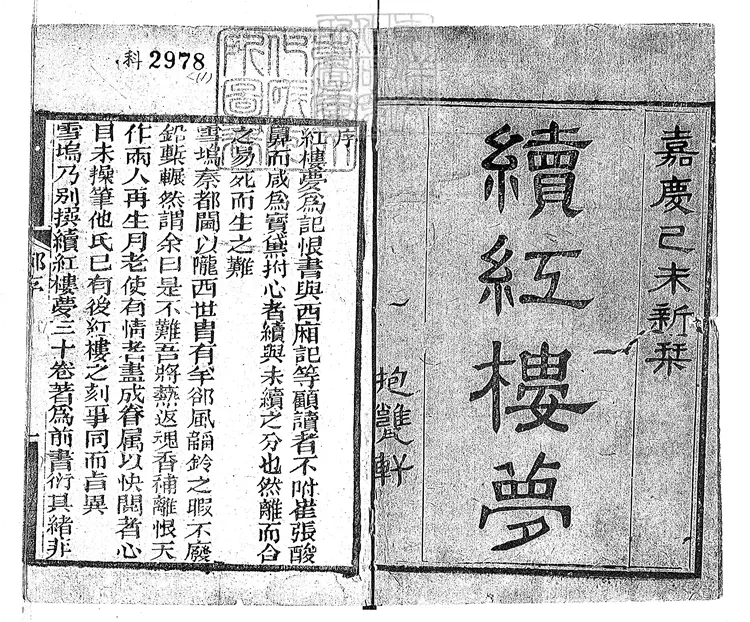 嘉慶己未新栞
續紅樓夢
抱甕軒
科2978
(1)
序
紅樓夢為記恨書與西廂記等顧讀者不咐崔張酸
鼻而咸為寶黛拊心者續與未續之分也然離而合
之易死而生之難
雪塢秦都閫以隴西世冑有羊郤風韻鈴之暇不廢
鉛槧輾然謂余曰是不難吾將爇返魂香補離恨天
作兩人再生月老使有情者盡成眷属以快閱者心
目未操筆他氏已有後紅樓之刻事同而旨異
雪塢乃別撰續紅樓夢三十卷著為前書衍其緒非
序